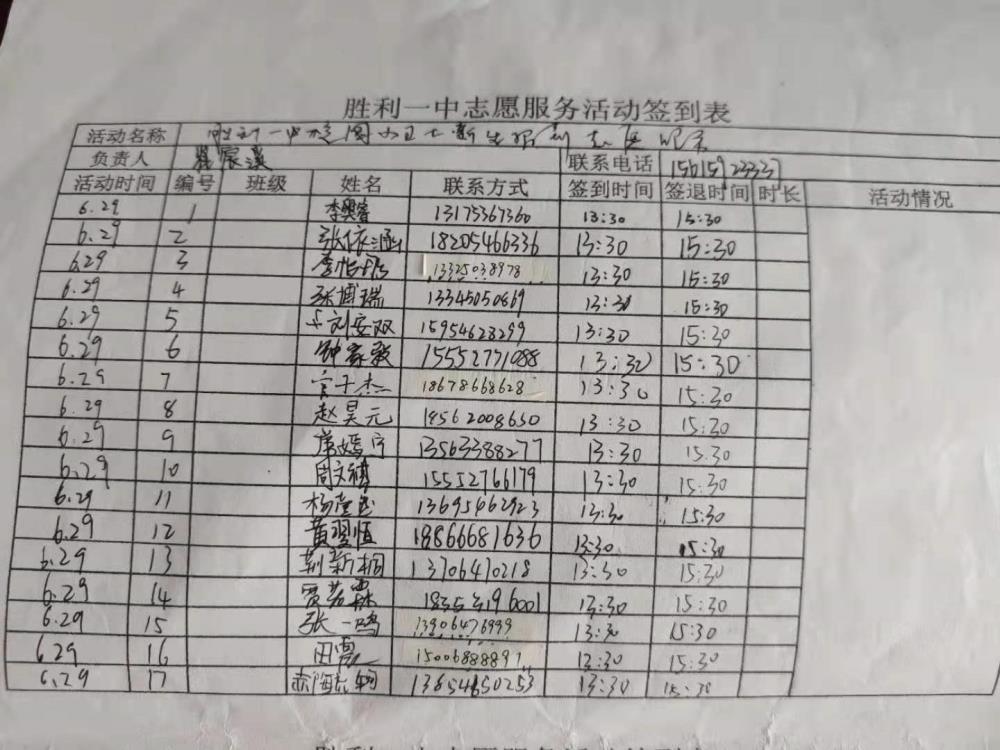 胜利一中志愿服务活动签到表
活动名称 胜利一中校园小卫士新生报到志愿服务
负责人 宸溪 联系电话 15615923337
活动时间 编号 班级 姓名 联系方式 签到时间 签退时间 时长 活动情况
6.29 1 李奥睿 13175367360 13:30 15:30
6.29 2 张依涵 18205466336 13:30 15:30
6.29 3 李怡彤 13325038978 13:30 15:30
6.29 4 张博瑞 13345050869 13:30 15:30
6.29 5 刘安双 15954628299 13:30 15:30
6.29 6 钟家毅 15552771088 13:30 15:30
6.29 7 官子杰 18678668628 13:30 15:30
6.29 8 赵昊元 19562008650 13:30 15:30
6.29 9 席嫣宁 13563388277 13:30 15.30
6.29 10 周文祺 15552766179 13:30 15:30
6.29 11 杨 13695662923 13:30 15:30
6.29 12 黄翌恒 18866681636 13:30 15:30
6.29 13 靳新桐 13706470218 13:30 15:30
6.29 14 贾若霖 13:30 15:30
6.29 15 张一鸣 13906476999 13:30 15:30
6.29 16 田 15006888897 13:30 15:30
6.29 17 13654650253 13:30 15:30